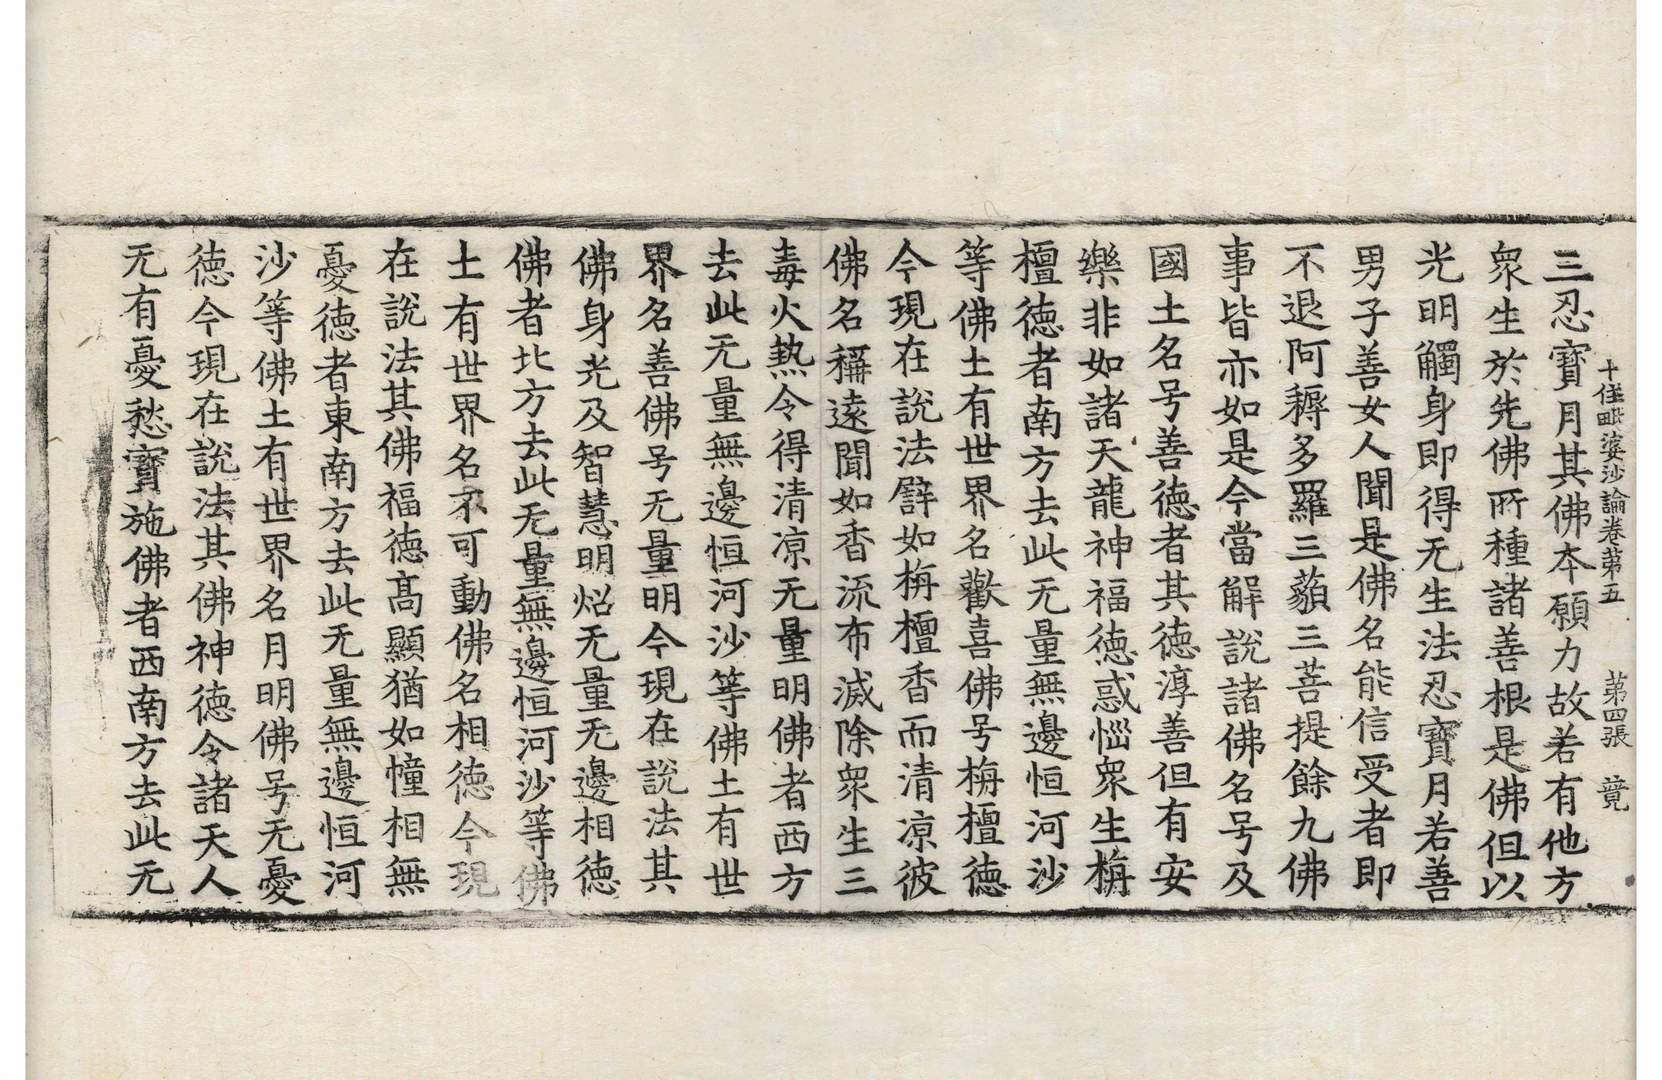 十住毗婆沙論卷第五　第四張　競
三忍寶月其佛本願力故若有他方
衆生於先佛所種諸善根是佛但以
光明觸身即得无生法忍寶月若善
男子善女人聞是佛名能信受者即
不退阿耨多羅三藐三菩提餘九佛
事皆亦如是今當解說諸佛名号及
國土名号善德者其德淳善但有安
樂非如諸天龍神福德惑惱衆生栴
檀德者南方去此无量無邊恒河沙
等佛土有世界名歡喜佛号栴檀德
今現在說法譬如栴檀香而清凉彼
佛名稱遠聞如香流布滅除衆生三
毒火熱令得清凉无量明佛者西方
去此无量無邊恒河沙等佛土有世
界名善佛号无量明今現在說法其
佛身光及智慧明炤无量无邊相德
佛者北方去此无量無邊恒河沙等佛
土有世界名不可動佛名相德今現
在說法其佛福德高顯猶如幢相無
憂德者東南方去此无量無邊恒河
沙等佛土有世界名月明佛号无憂
德今現在說法其佛神德令諸天人
无有憂愁寶施佛者西南方去此无